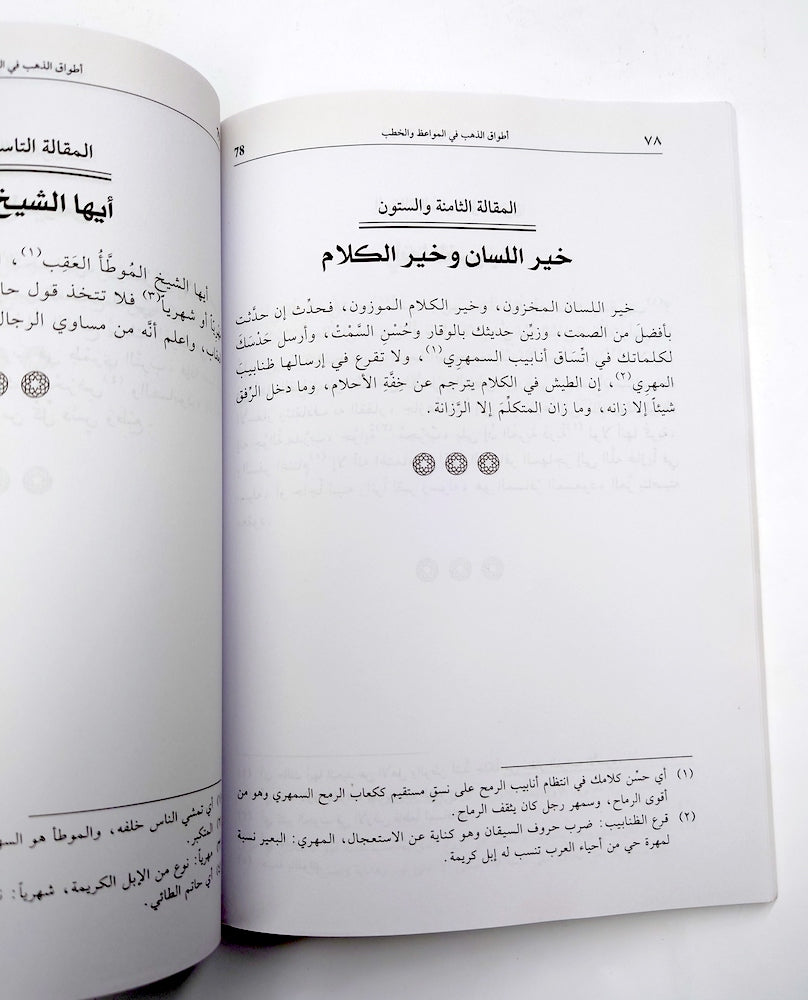 ٧٨
أطواق الذهب في المواعظ والخطب
78
المقالة الثامنة والستون
خير اللسان وخير الكلام
خير اللسان المخزون، وخير الكلام الموزون، فحدِّث إن حدَّثت
بأفضلَ من الصمت، وزيِّن حديثك بالوقار وحُسْنِ السَّمْتْ، وأرسل حَدْسَكَ
لكلماتك في اتِّسَاق أنابيب السمهري(١)، ولا تقرع في إرسالها ظنابيبَ
المهري(٢)، إن الطيش في الكلام يترجم عن خِفَّةِ الأحلام، وما دخل الرِّفق
شيئاً إلا زانه، وما زان المتكلِّمَ إلا الرَّزانة.
(١) أي حسْن كلامك في انتظام أنابيب الرمح على نسقٍ مستقيم ككعابْ الرمح السمهري وهو من
أقوى الرماح، وسمهر رجل كان يثقف الرماح.
(٢) قرع الظنابيب: ضرب حروف السيقان وهو كناية عن الاستعجال، المهري: البعير نسبة
لمهرة حي من أحياء العرب تنسب له إبل كريمة.
أطواق الذهب في
المقالة
أيها الشيخ
أيها الشيخ المُوطَّأُ العَقِب(١)،
أو شهرياً(٣) فلا تتخذ قول
واعلم أنَّه من مساوي الرجال
أي تمشي الناس خلفه، والموطأ هو
المتكبر.
مهرياً: نوع من الإبل الكريمة، شهرياً:
أي حاتم الطائي.